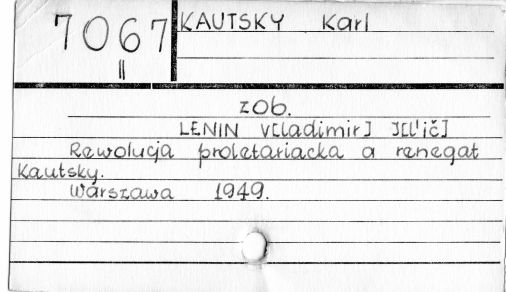 7067
II
KAUTSKY Karl
zob.
LENIN V[ladimir] I[l'ič]
Rewolucja proletariacka a renegat
Kautsky.
Warszawa 1949.